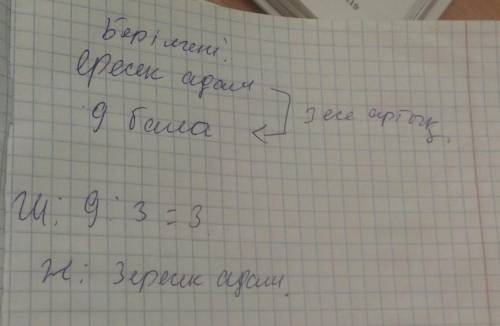 Берілгені:
Ересек адам
9 бала
3 есе артық.
Ш: 9 : 3 = 3.
Ж: 3 ересек адам.